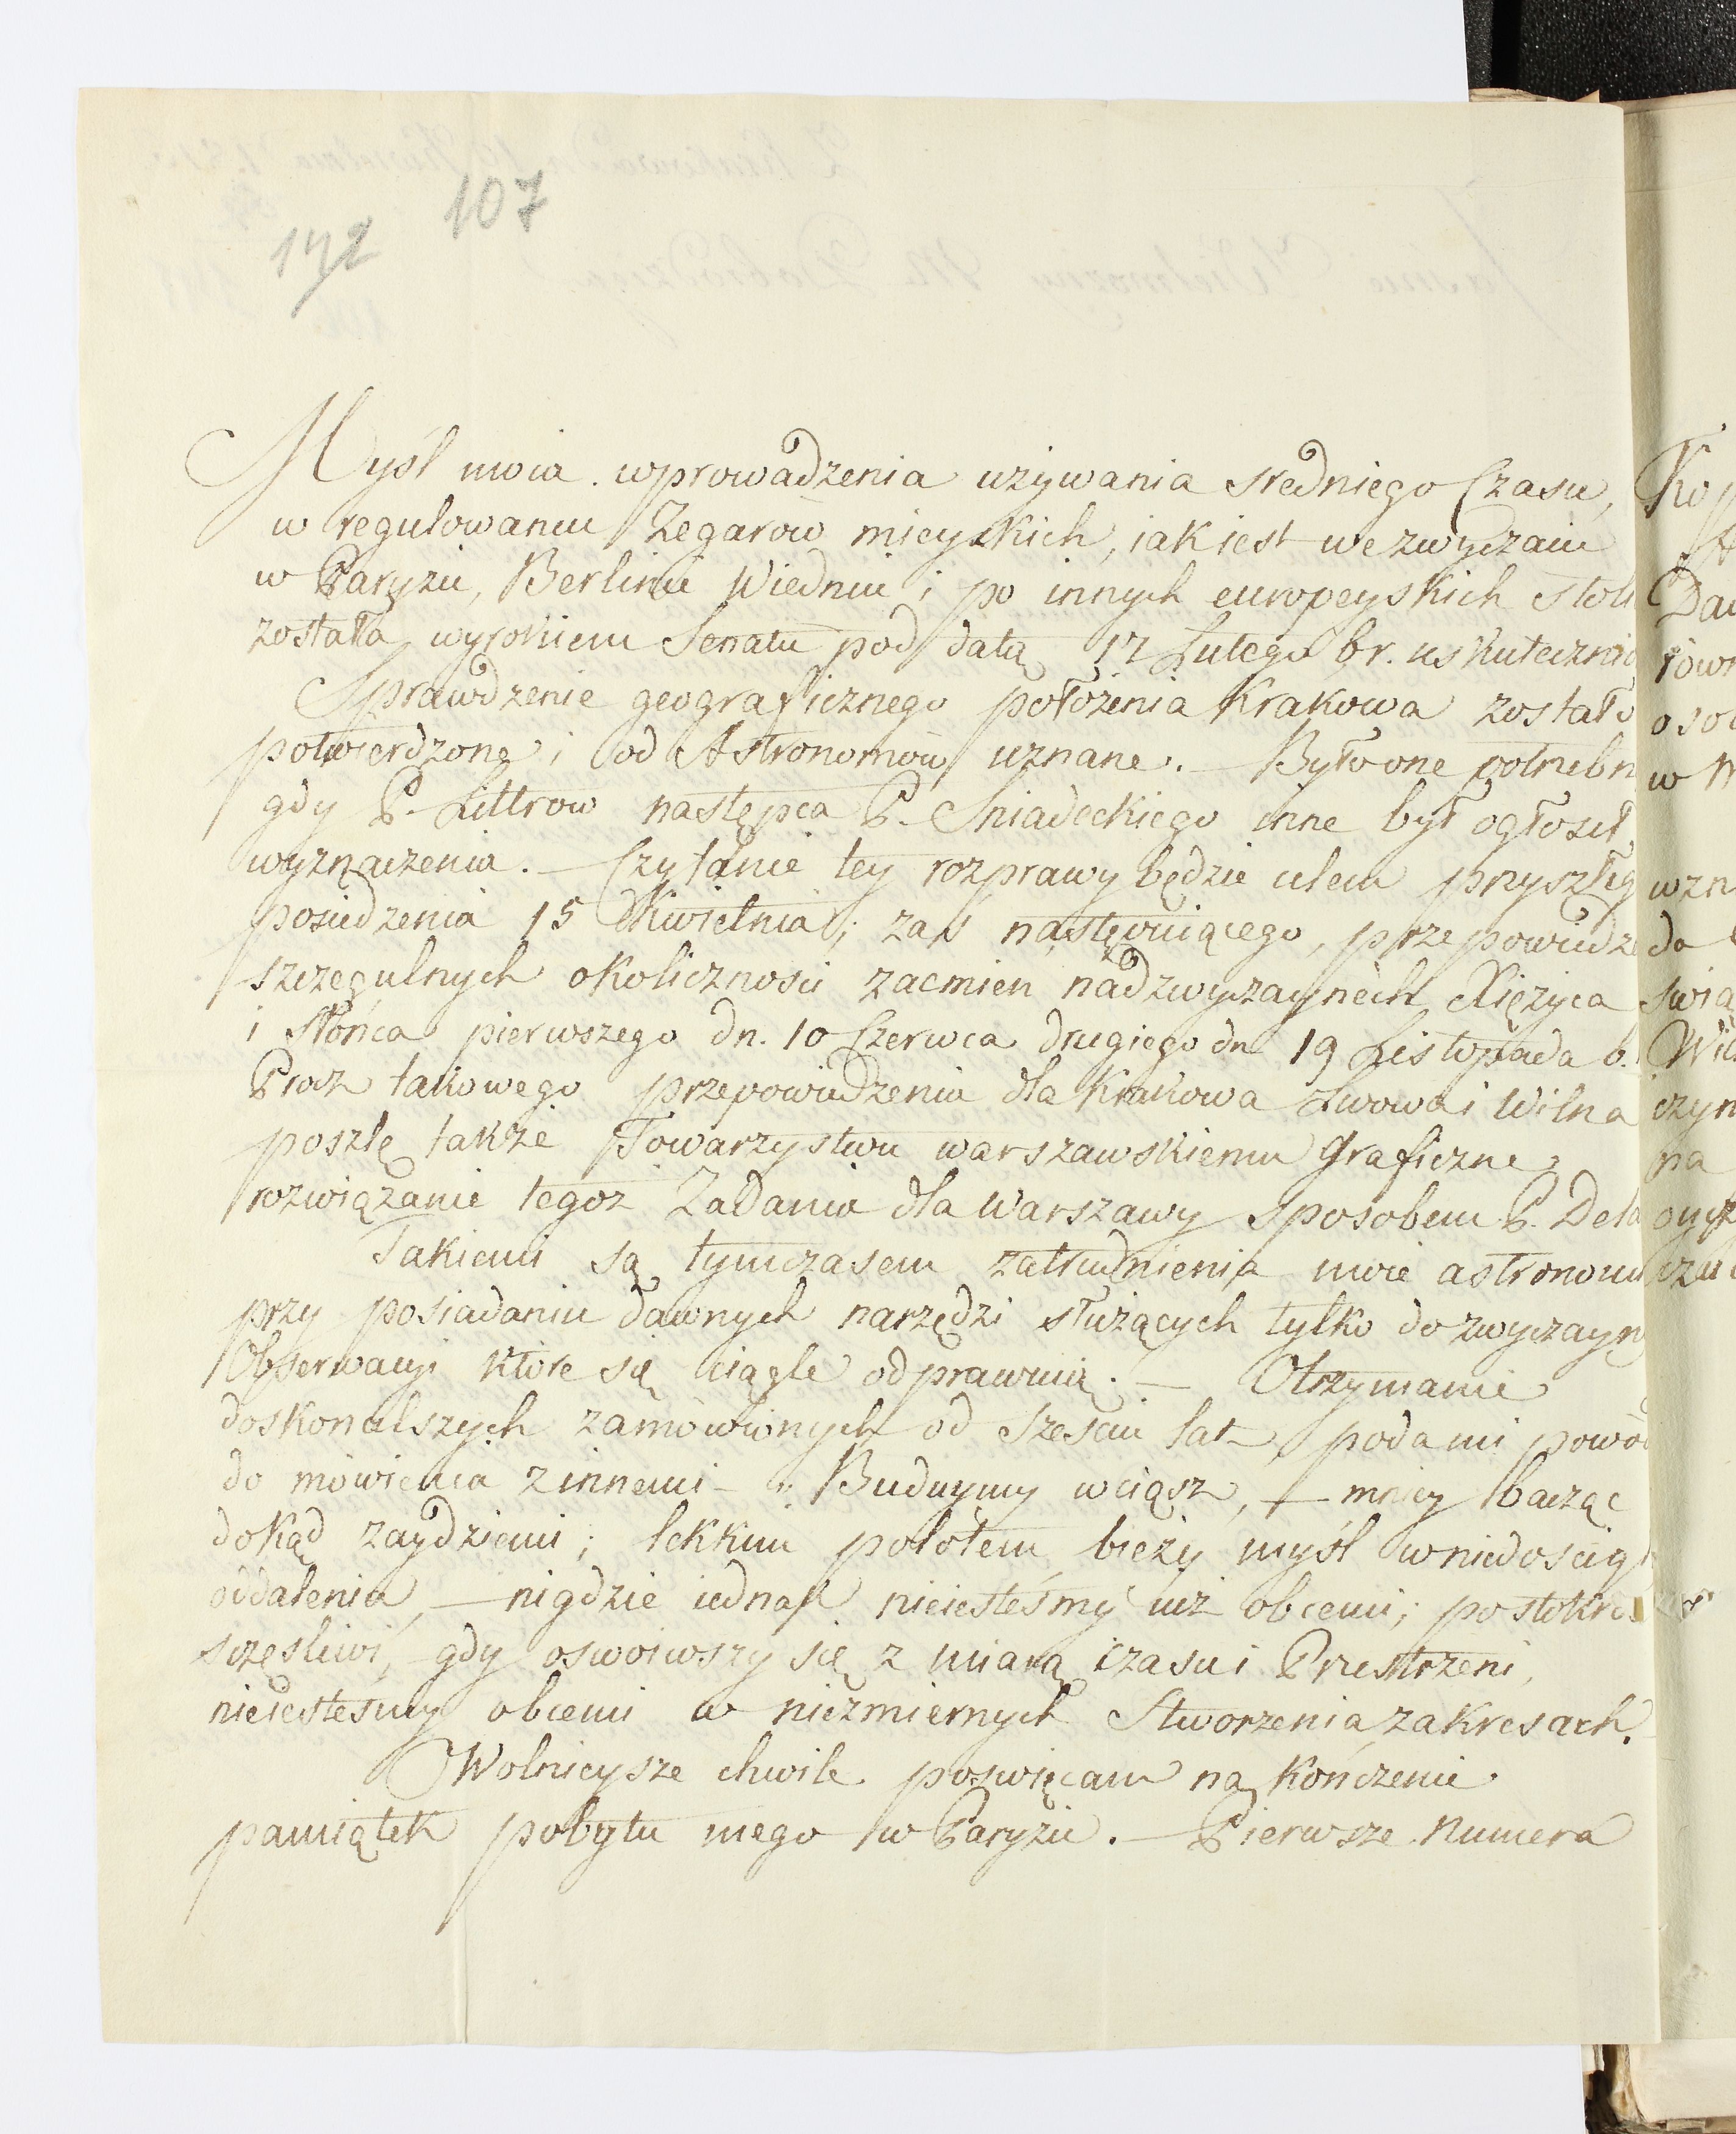 107
172
Myśl moia wprowadzenia używania sredniego Czasu,
w regulowaniu Zegarow mieyskich, iak iest we zwyczaiu
w Paryżu, Berlinie Wiedniu i po innych europeyskich stoli
została wyrokiem Senatu pod datą 17 Lutego br. uskutecznio
Sprawdzenie geograficznego położenia Krakowa zostało
potwierdzone i od Astronomów uznane. — Było one potrzebn
gdy P. Littrow następca P. Sniadeckiego inne był ogłosił
wyznaczenia. — Czytanie tey rozprawy będzie celem przyszłeg
posiedzenia 15 Kwietnia; zaś następuiącego, przepowiedze
szczegulnych okoliczności zacmien nadzwyczaynech Xiężyca
i Słońca pierwszego dn. 10 Czerwca drugiego dn 19 Listopada b.
Procz takowego przepowiedzenia dla Krakowa Lwowa i Wilna
poszlę także Towarzystwu warszawskiemu graficzne
rozwiązanie tegoz Zadania dla Warszawy sposobem P. Dela
Takiemi są tymczasem zatrudnienia moie astronomi
przy posiadaniu dawnych narzędzi służących tylko do zwyczayn
Obserwacyi ktore się ciągle odprawuią. — Otrzymanie
doskonalszych zamówionych od sześciu lat poda mi powód
do mówienia z innemi — Buduymy wciąsz, — mniey bacząc
dokąd zaydziemi; lekkim polotem bieży myśl w niedościg
oddalenia, — nigdzie iednak nieiesteśmy iuż obcemi; po stokro
sczęśliwi, gdy oswoiwszy się z miarą czasu i Przestrzeni,
nieiesteśmy obcemi w niezmiernych Stworzenia zakresach.
Wolnieysze chwile poswięcam na kończenie
pamiątek pobytu mego w Paryżu. — Pierwsze numera